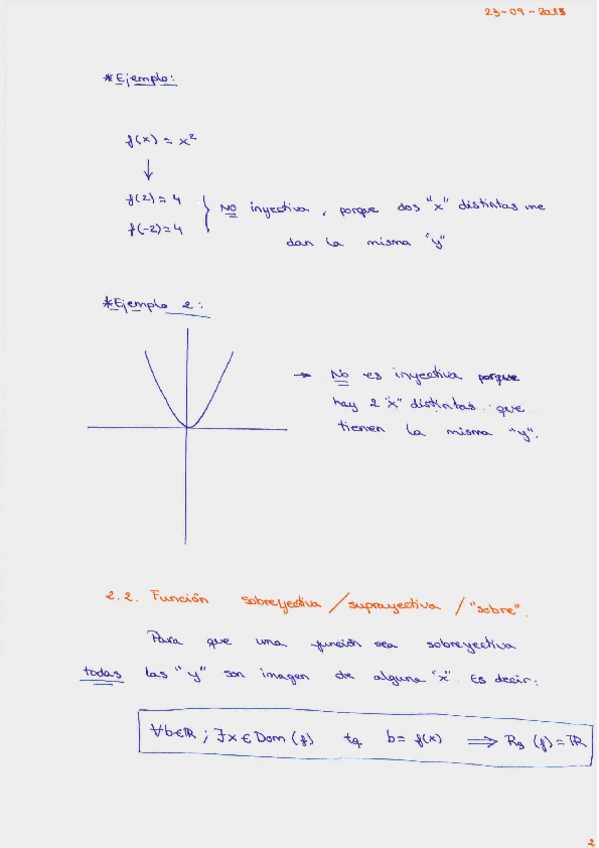 23-09-2013
*Ejemplo:
f(x) = x²
↓
f(2) = 4
f(-2) = 4
} No inyectiva, porque dos "x" distintas me
dan la misma "y"
*Ejemplo 2:
→ No es inyectiva porque
hay 2 "x" distintas que
tienen la misma "y".
2.2. Función sobreyectiva / suprayectiva / "sobre".
Para que una función sea sobreyectiva
todas las "y" son imagen de alguna "x". Es decir:
∀b∈ℝ ; ∃x∈Dom(f) tq b = f(x) ⟹ Rg (f) = ℝ
2